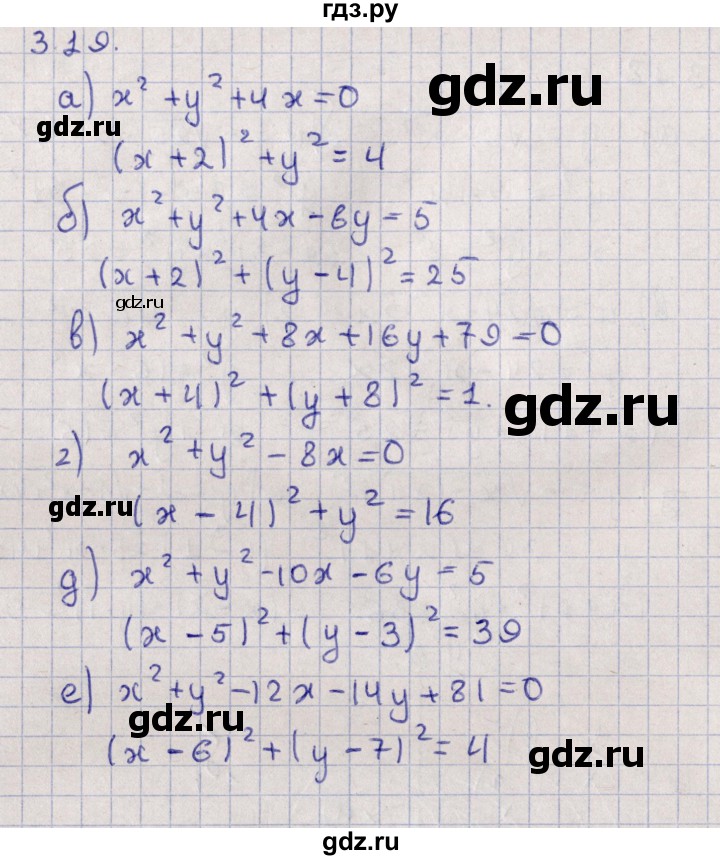 гдз.ру
3.19.
а) x² + y² + 4x = 0
gdz.ru
gdz.ru
(x + 2)² + y² = 4
б) x² + y² + 4x - 8y = 5
(x + 2)² + (y - 4)² = 25
gdz.ru
в) x² + y² + 8x + 16y + 79 = 0
(x + 4)² + (y + 8)² = 1.
gdz.ru
г) x² + y² - 8x = 0
gdz.ru
(x - 4)² + y² = 16
д) x² + y² - 10x - 6y = 5
(x - 5)² + (y - 3)² = 39
е) x² + y² - 12x - 14y + 81 = 0
gdz.ru
(x - 6)² + (y - 7)² = 4
gdz.ru
gdz.ru